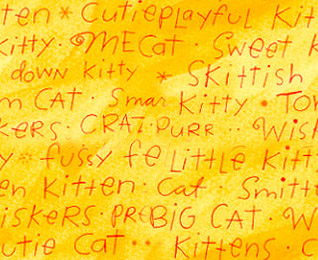 ten * CutiePlayful Kit
kitty · MECat · Sweet K
down Kitty * Skittish
m CAT · Smar Kitty · To
kers · CRAZ Purr · · Wisk
y * fussy fe Little Kitt
en Kitten · Cat · Smitt
iskers · PREBIG CAT · W
utie Cat · · Kittens · C